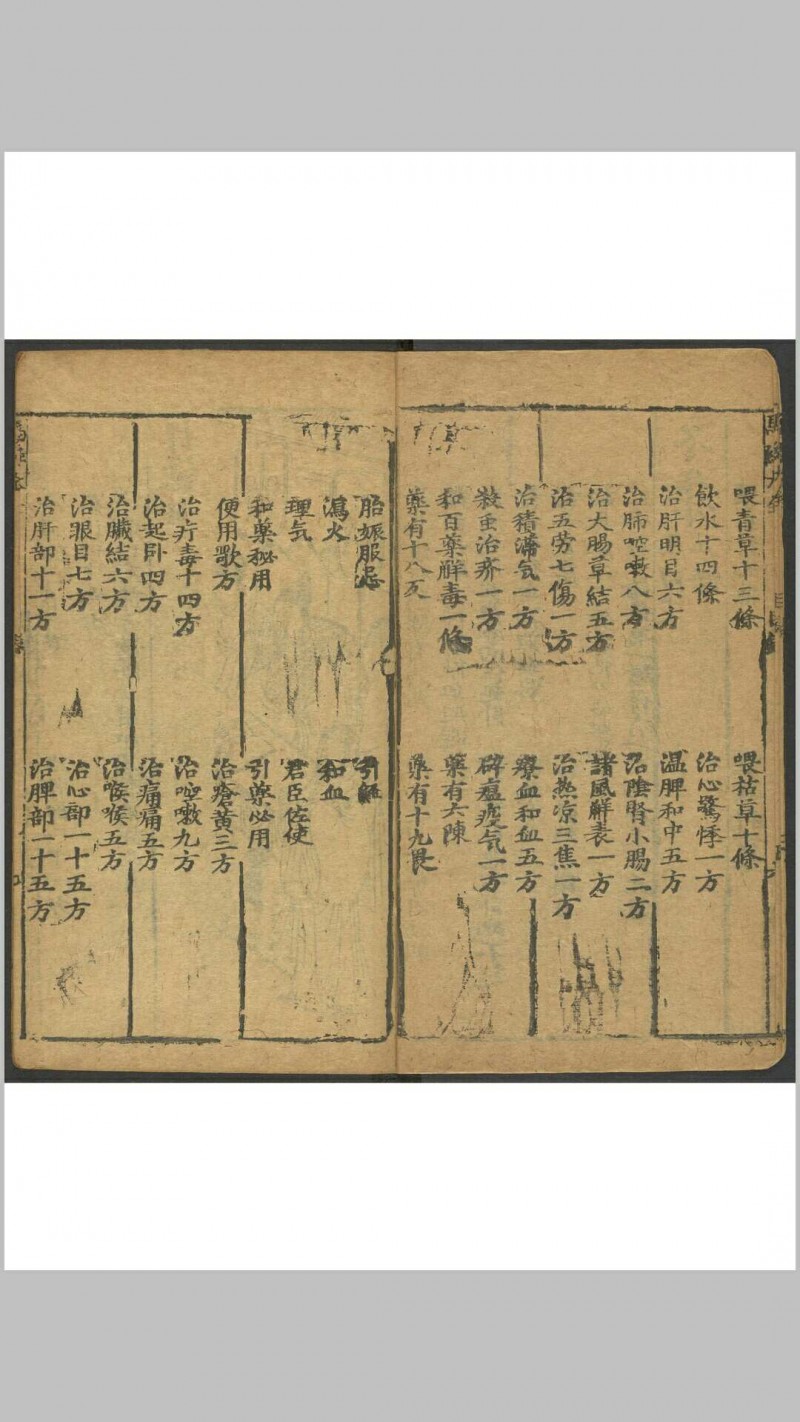 喂青草十三條
喂枯草十條
飲水十四條
治心驚悸一方
治肝明目六方
温脾和中五方
治肺啌嗽八方
治陰腎小腸二方
治大腸草結五方
諸風解表一方
治五劳七傷一方
治热凉三焦一方
治積滯气一方
療血和血五方
殺虫治疥一方
辟瘟疫气一方
和百藥解毒一條
藥有六陳
藥有十八反
藥有十九畏
胎娠服忌
引經
瀉火
和血
理气
君臣佐使
和藥秘用
引藥必用
便用歌方
治瘡黄三方
治疔毒十四方
治啌嗽九方
治起卧四方
治痛痛五方
治臟結六方
治喉㗋五方
治眼目七方
治心部一十五方
治肝部十一方
治脾部一十五方